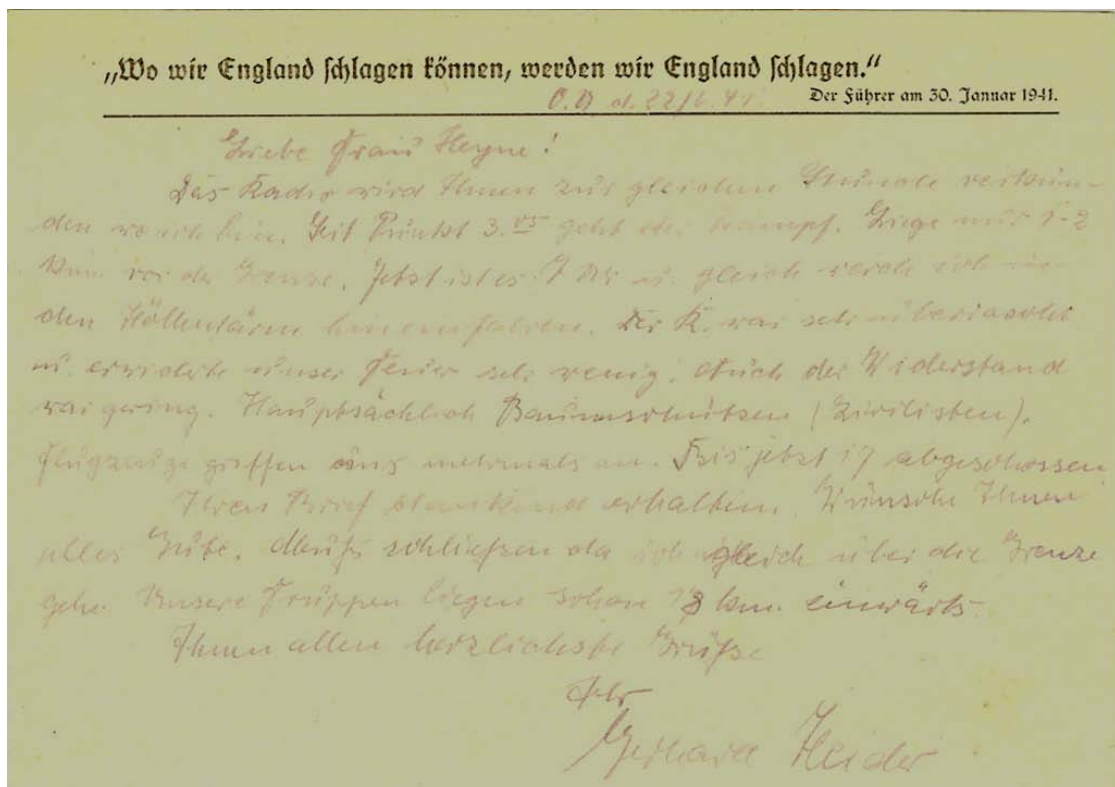 „Wo wir England schlagen können, werden wir England schlagen.“
Der Führer am 30. Januar 1941.
O.U. d. 22/6.41.
Liebe Frau Heyne!
Das Radio wird Ihnen zur gleichen Stunde verkün-
den wo ich bin. Seit Punkt 3.05 geht der Kampf. Liege nur 1-2
km. vor der Grenze. Jetzt ist es Uhr u. gleich werde ich in
den Höllenlärm hineinfahren. Der R. war sehr überrascht
u. erwiderte unser Feuer sehr wenig. Auch der Widerstand
war gering. Hauptsächlich Baumschützen (Zivilisten).
Flugzeuge griffen uns mehrmals an. Bis jetzt 17 abgeschossen.
Ihren Brief dankend erhalten. Wünsche Ihnen
alles Gute. Muß schließen da ich gleich über die Grenze
gehe. Unsere Truppen liegen schon km. einwärts.
Ihnen allen herzlichste Grüße
Ihr
Gerhard Heider